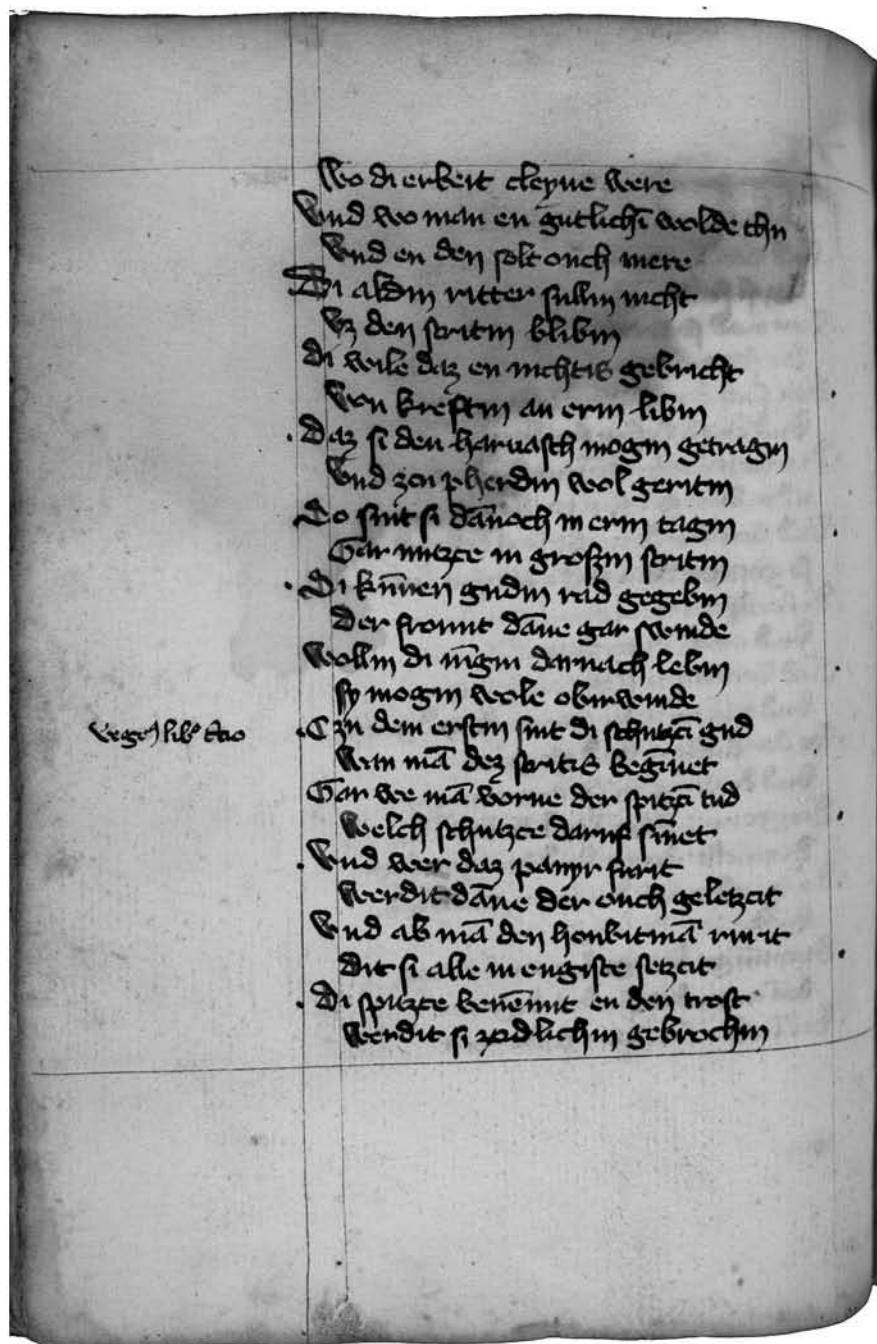 Wo di erbeit cleyne were
Vnd wo man en gutlichē wolde thu
Vnd en den solt ouch mere
Di aldin ritter sullin nicht
Vz den stritin blibin
Di weile daz en nichtis gebricht
Von kreftin an erin libin
Daz si den harnasch mogin getragin
Vnd zcu pherdin wol geritin
Do sint si dānoch in erin tagin
Gar nutzce in groszin stritin
Di kūnen gudin rad gegebin
Der fromit dāne gar swinde
Wollin di iūgin darnach lebin
sy mogin wole obirwinde
vegeͥ libº
Czu dem erstin sint di schutzcī gud
wan mā dez stritis begīnet
Gar we mā vorne der spitzcī tud
welch schutzce daruf sīnet
Vnd wer daz panyr furit
werdit dāne der ouch geletzcit
Vnd ab mā den houbitmā rurit
dit si alle in engiste setzcit
Di spitzce benēmit en den trost
werdit si gebrochin